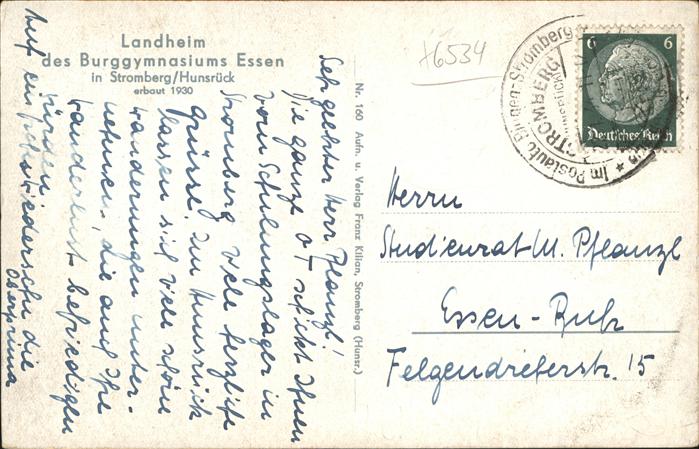 Landheim
des Burggymnasiums Essen
in Stromberg/Hunsrück
erbaut 1930
Sehr geehrter Herr Pflanzl!
Die ganze O I schickt Ihnen
vom Schulungslager in
Stromberg viele herzliche
Grüsse. Im Hunsrück
lassen sich viele schöne
Wanderungen unter-
nehmen, die auch Ihre
Wanderlust befriedigen
würden.
Auf ein frohes Wiedersehn die
Oberprima
Nr. 160 Aufn. u. Verlag Franz Kilian, Stromberg (Hunsr.)
+6534
6 6
Deutsches Reich
Bingen-Stromberg
STROMBERG
Im Postauto
Herrn
Studienrat M. Pflanzl
Essen-Ruhr
Felgendreherstr. 15